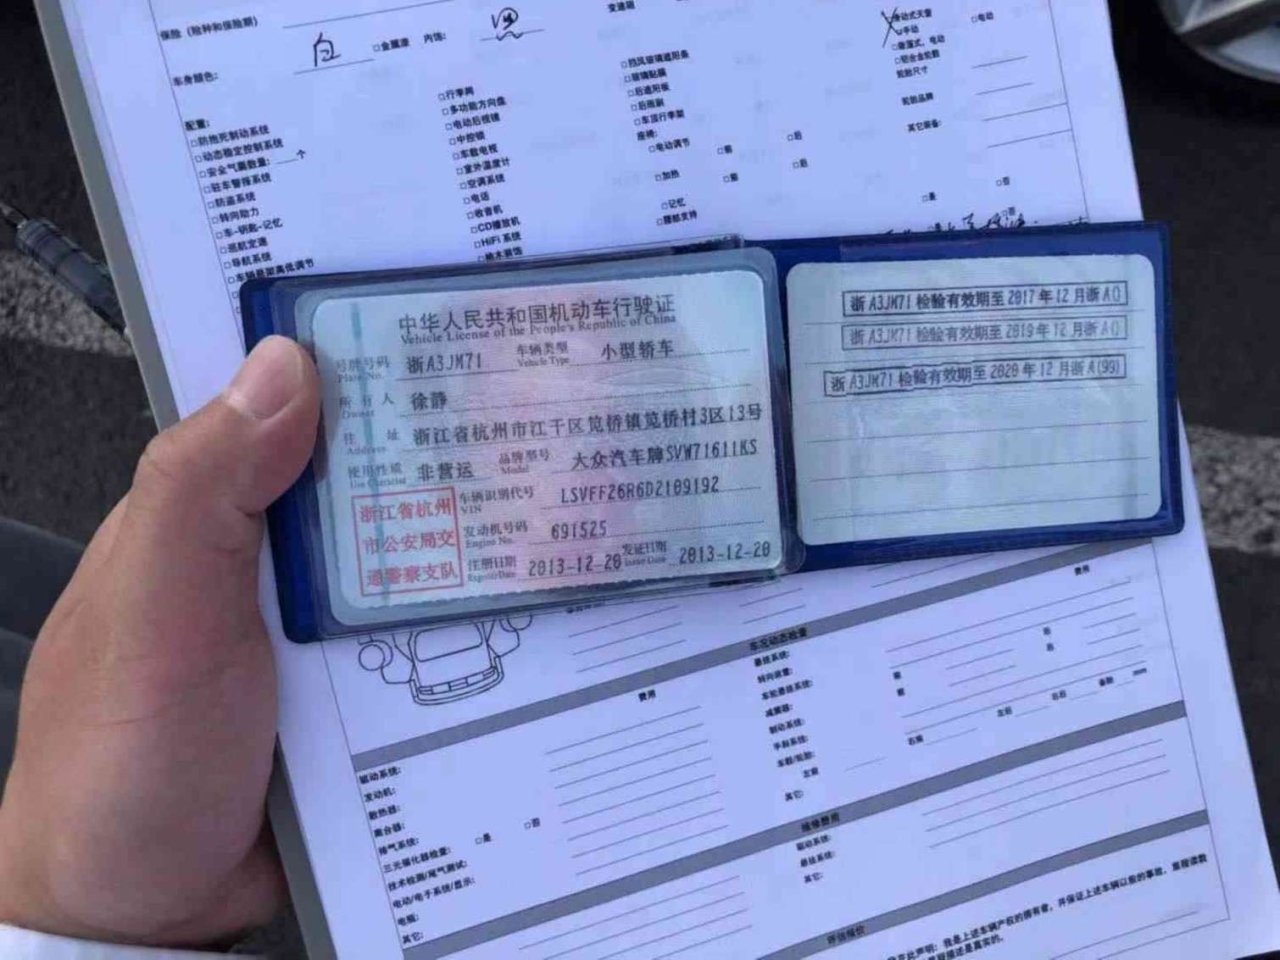 保险（险种和保险期）
交速箱
车身颜色：
白
□金属漆 内饰：
黑
滑动式天窗
□手动
□电动
□敞篷式，电动
□铝合金轮毂
轮胎尺寸
轮胎品牌
其它装备：
配置：
□防抱死制动系统
□动态稳定控制系统
□安全气囊数量：___个
□驻车警报系统
□防盗系统
□转向助力
□车-钥匙-记忆
□巡航定速
□导航系统
□车辆悬架高低调节
□行李网
□多功能方向盘
□电动后视镜
□中控锁
□车载电视
□室外温度计
□空调系统
□电话
□收音机
□CD播放机
□HiFi 系统
□桃木装饰
□挡风玻璃遮阳条
□玻璃贴膜
□后遮阳板
□后雨刷
□车顶行李架
座椅：
□电动调节 □前 □后
□加热 □前 □后
□记忆 □是 □否
□腰部支持
中华人民共和国机动车行驶证
Vehicle License of the People's Republic of China
号牌号码 浙A3JM71 车辆类型 小型轿车
Plate No. Vehicle Type
所有人 徐静
Owner
住址 浙江省杭州市江干区笕桥镇笕桥村3区13号
Address
使用性质 非营运 品牌型号 大众汽车牌SVW71611KS
Use Character Model
浙江省杭州
市公安局交
通警察支队
车辆识别代号 LSVFF26R6D2189192
VIN
发动机号码 691525
Engine No.
注册日期 2013-12-20 发证日期 2013-12-20
Register Date Issue Date
浙A3JM71检验有效期至2017年12月浙A()
浙A3JM71检验有效期至2019年12月浙A()
浙A3JM71检验有效期至2020年12月浙A(99)
费用
车况动态检查
费用
驱动系统：
发动机：
散热器：
离合器：
排气系统：
三元催化器检查： □是 □否
技术检测/尾气测试：
电动/电子系统/显示：
电瓶：
其它：
悬挂系统：
转向装置：
车轮悬挂系统：
减震器：
制动系统：
手刹系统：
车毂/轮胎：
左前 右前 左后 右后 备胎 mm
其它：
前 后
前 后
维修费用
驱动系统：
悬挂系统：
其它：
评估报价
在此声明：我是上述车辆产权的拥有者，并保证上述车辆以前的事故，里程读数
里程描述是真实的。